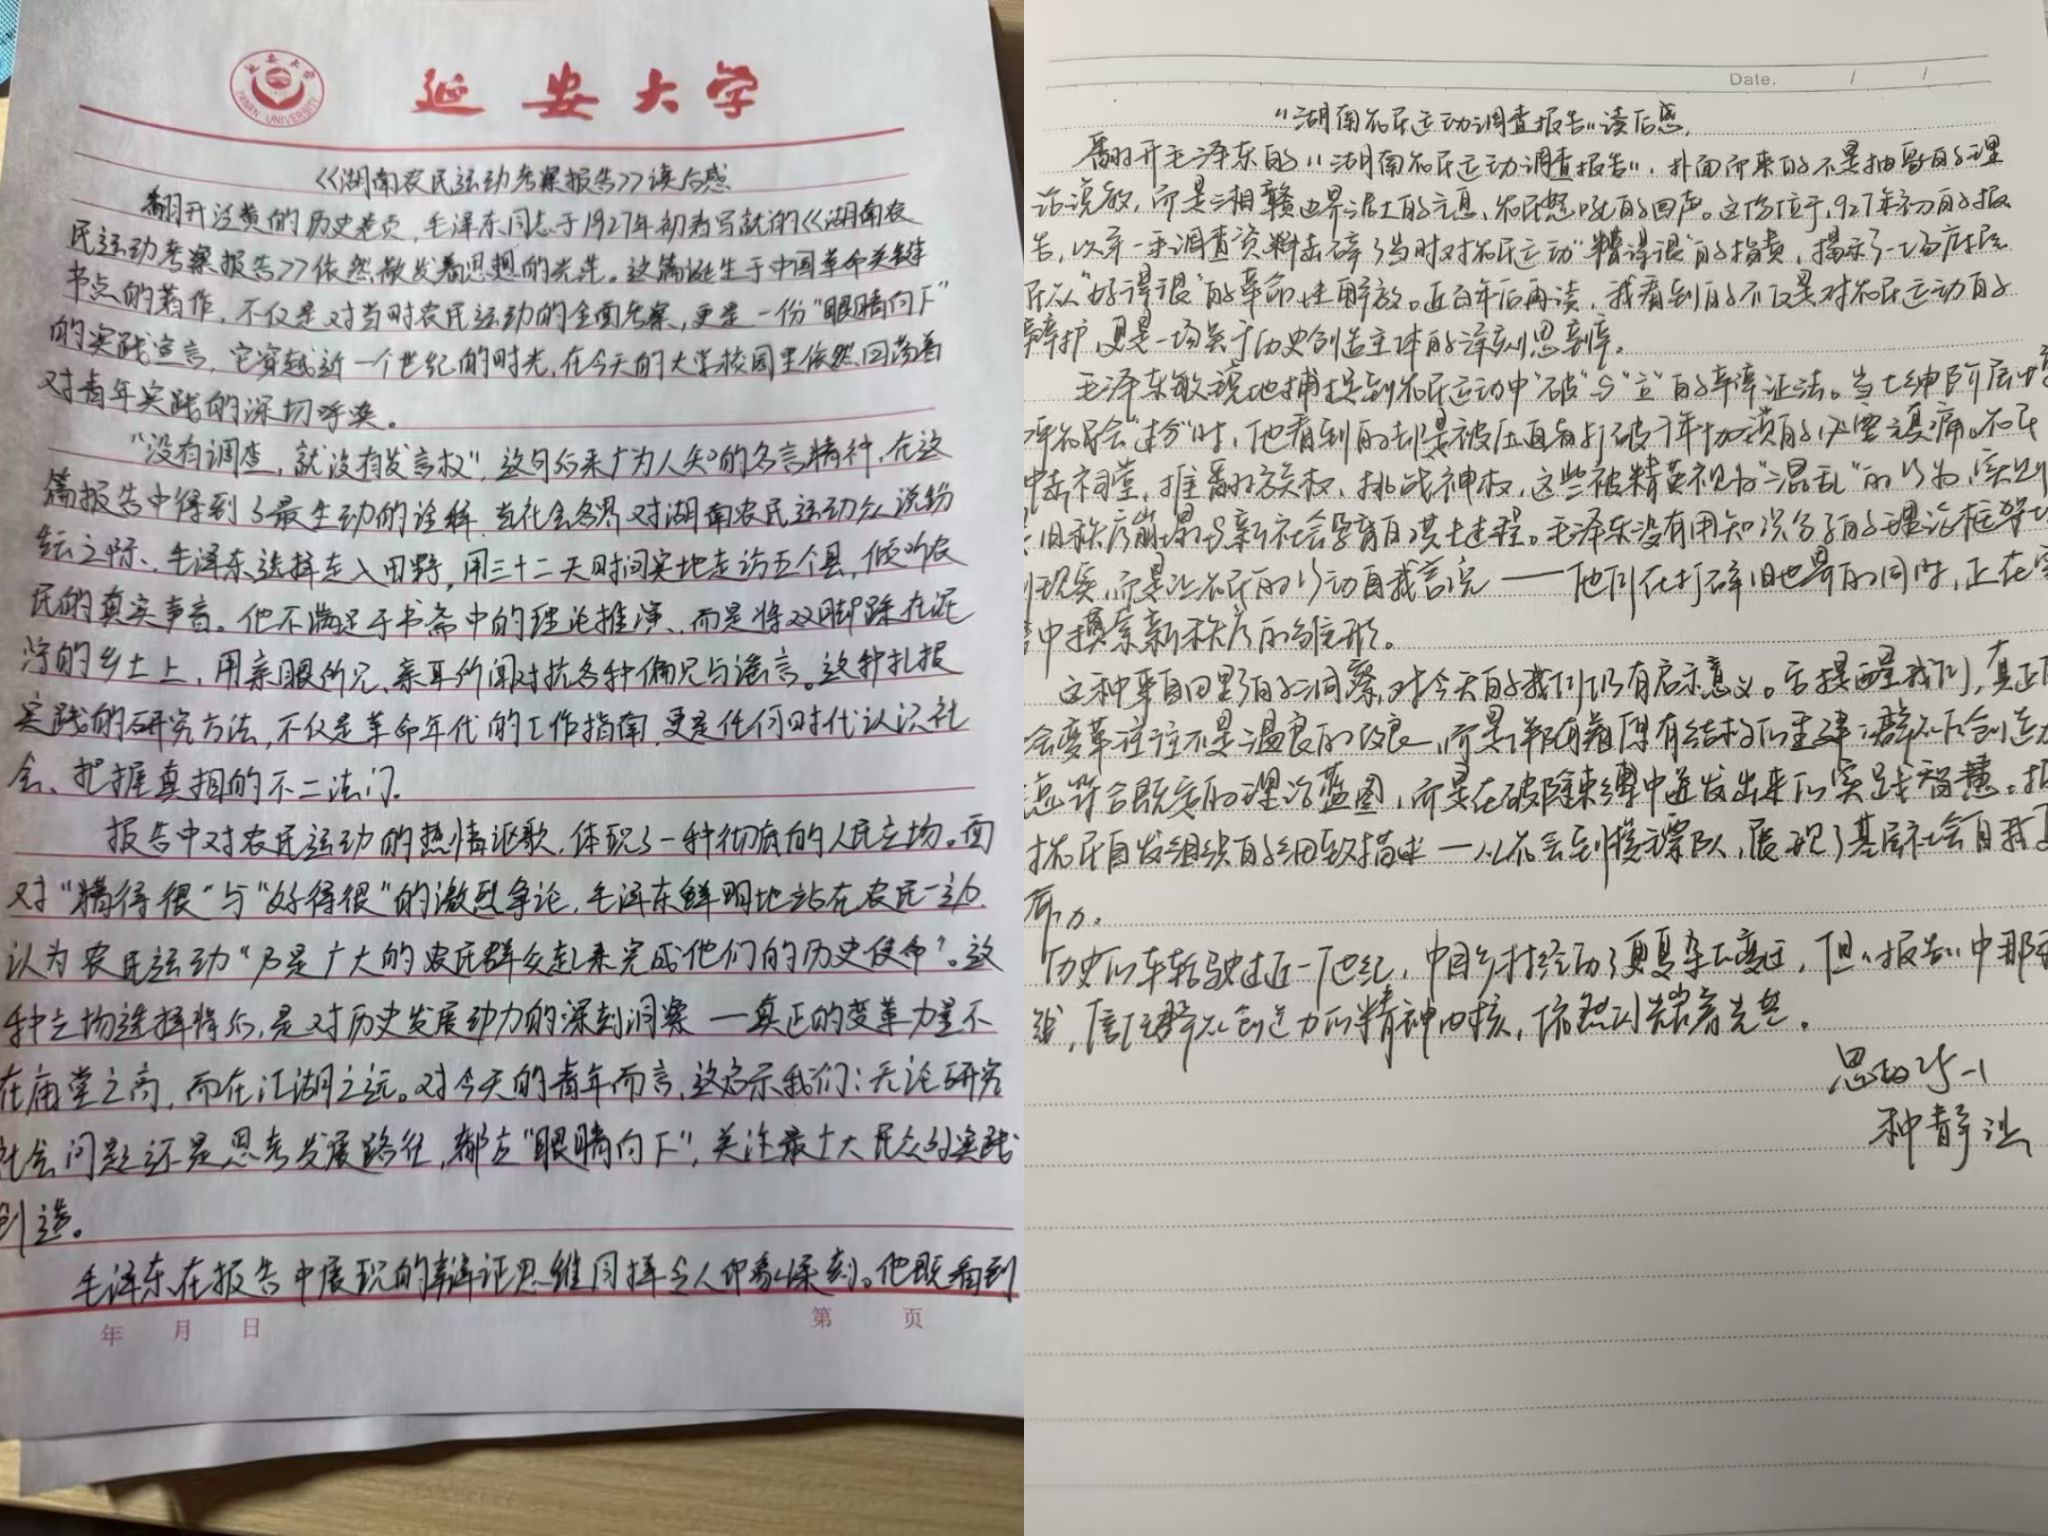 延安大学
YANAN UNIVERSITY
《湖南农民运动考察报告》读后感
翻开泛黄的历史卷页，毛泽东同志于1927年初春写就的《湖南农
民运动考察报告》依然散发着思想的光芒。这篇诞生于中国革命关键
节点的著作，不仅是对当时农民运动的全面考察，更是一份“眼睛向下”
的实践宣言，它穿越近一个世纪的时光，在今天的大学校园里依然回荡着
对青年实践的深切呼唤。
“没有调查，就没有发言权”，这句后来广为人知的名言精神，在这
篇报告中得到了最生动的诠释。当社会各界对湖南农民运动众说纷
纭之际，毛泽东选择走入田野，用三十二天时间实地走访五个县，倾听农
民的真实声音。他不满足于书斋中的理论推演，而是将双脚踩在泥
泞的乡土上，用亲眼所见、亲耳所闻对抗各种偏见与谣言。这种扎根
实践的研究方法，不仅是革命年代的工作指南，更是任何时代认识社
会、把握真相的不二法门。
报告中对农民运动的热情讴歌，体现了一种彻底的人民立场。面
对“糟得很”与“好得很”的激烈争论，毛泽东鲜明地站在农民一边，
认为农民运动“乃是广大的农民群众起来完成他们的历史使命”。这
种立场选择背后，是对历史发展动力的深刻洞察—真正的变革力量不
在庙堂之高，而在江湖之远。对今天的青年而言，这启示我们：无论研究
社会问题还是思考发展路径，都应“眼睛向下”，关注最广大民众的实践
创造。
毛泽东在报告中展现的辩证思维同样令人印象深刻。他既看到
年 月 日 第 页
Date. / /
“湖南农民运动调查报告”读后感
翻开毛泽东的“湖南农民运动调查报告”，扑面而来的不是抽象的理
论说教，而是湘赣边界泥土的气息，农民怒吼的回声。这份位于1927年初的报
告，以第一手调查资料击碎了当时对农民运动“糟得很”的指责，揭示了一场底层
民众“好得很”的革命性解放。近百年后再读，我看到的不仅是对农民运动的
辩护，更是一场关于历史创造主体的深刻思辨。
毛泽东敏锐地捕捉到农民运动中“破”与“立”的辩证法。当士绅阶层
农会“过分”时，他看到的却是被压迫者打破千年枷锁的必要阵痛。农民
冲击祠堂，推翻族权，挑战神权，这些被精英视为“混乱”的行为，实则
旧秩序崩塌与新社会孕育的共生过程。毛泽东没有用知识分子的理论框架
现实，而是让农民的行动自我言说——他们在打碎旧世界的同时，正在
中摸索新秩序的雏形。
这种来自田野的洞察，对今天的我们仍有启示意义。它提醒我们，真正
会变革往往不是温良的改良，而是伴随着原有结构的重建；群众的创造力
总符合既定的理论蓝图，而是在破除束缚中迸发出来的实践智慧。
农民自发组织的细致描述—从农会到梭镖队，展现了基层社会自我
能力。
历史的车轮驶过近一世纪，中国乡村经历了更复杂的变迁，但“报告”中那
信任群众创造力的精神内核，依然闪烁着光芒。
思政25-1
种静